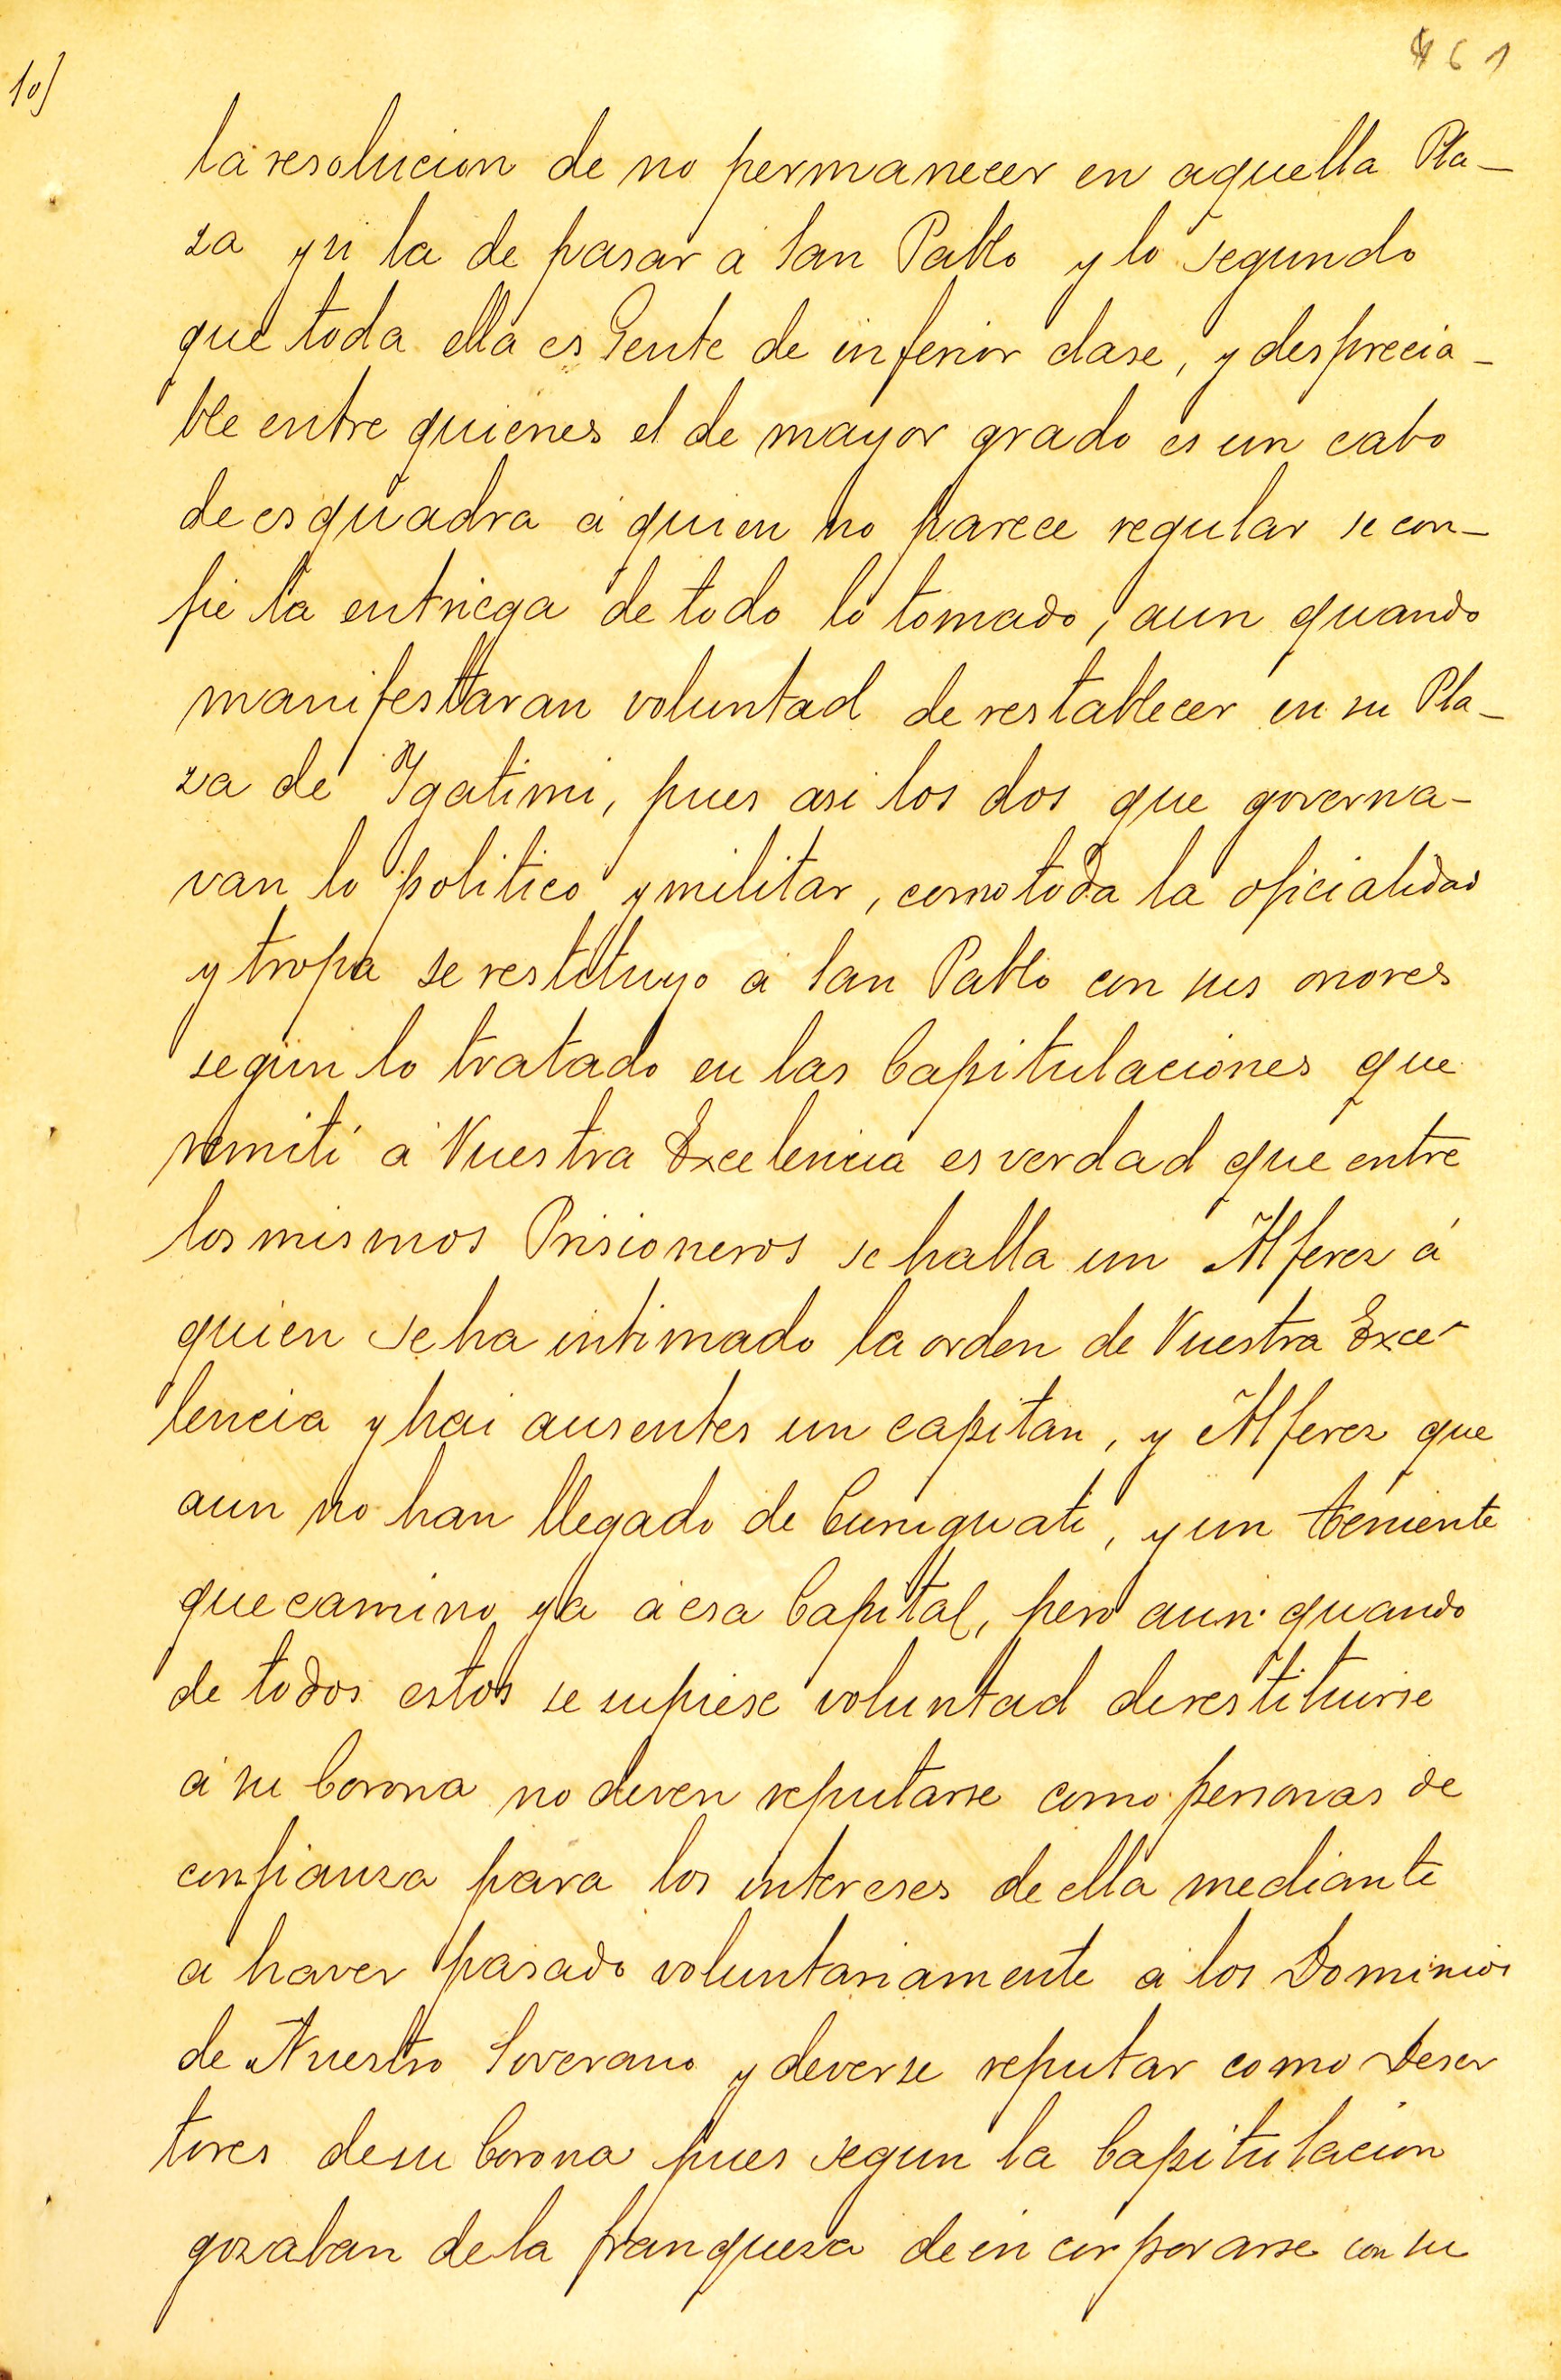 461
10)
la resolucion de no permanecer en aquella Pla-
za y si la de pasar á San Pablo y lo segundo
que toda ella es Gente de inferior clase, y desprecia-
ble entre quienes el de mayor grado es un cabo
de esquadra á quien no parece regular se con-
fie la entriega de todo lo tomado, aun quando
manifesttaran voluntad de restablecer en su Pla-
za de Ygatimi, pues asi los dos que governa-
van lo politico y militar, como toda la oficialidad
y tropa se restituyo á San Pablo con sus onores
segun lo tratado en las Capitulaciones que
remiti á Vuestra Excelencia es verdad que entre
los mismos Prisioneros se halla un Alferez á
quien se ha intimado la orden de Vuestra Exce-
lencia y hai ausentes un capitan, y Alferez que
aun no han llegado de Curuguati, y un teniente
que camino ya á esa Capital, pero aun quando
de todos estos se supiese voluntad de restituirse
á su Corona no deven reputarse como personas de
confianza para los intereses de ella mediante
á haver pasado voluntariamente á los Dominios
de Nuestro Soverano y deverse reputar como Deser
tores de su Corona pues segun la Capitulacion
gozaban de la franqueza de incorporarse con su